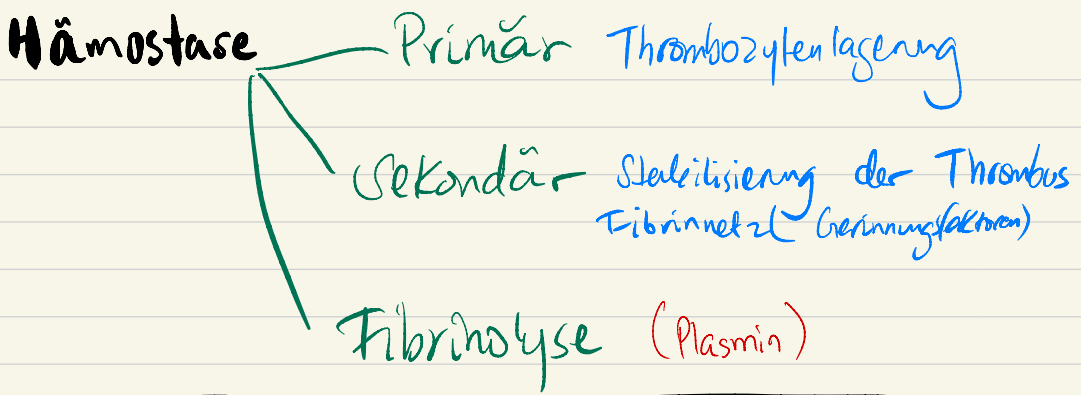 Hämostase Primär Thrombozytenlagerung
Sekondär Stabilisierung der Thrombus
Fibrinnetz( Gerinnungsfaktoren)
Fibrinolyse (Plasmin)